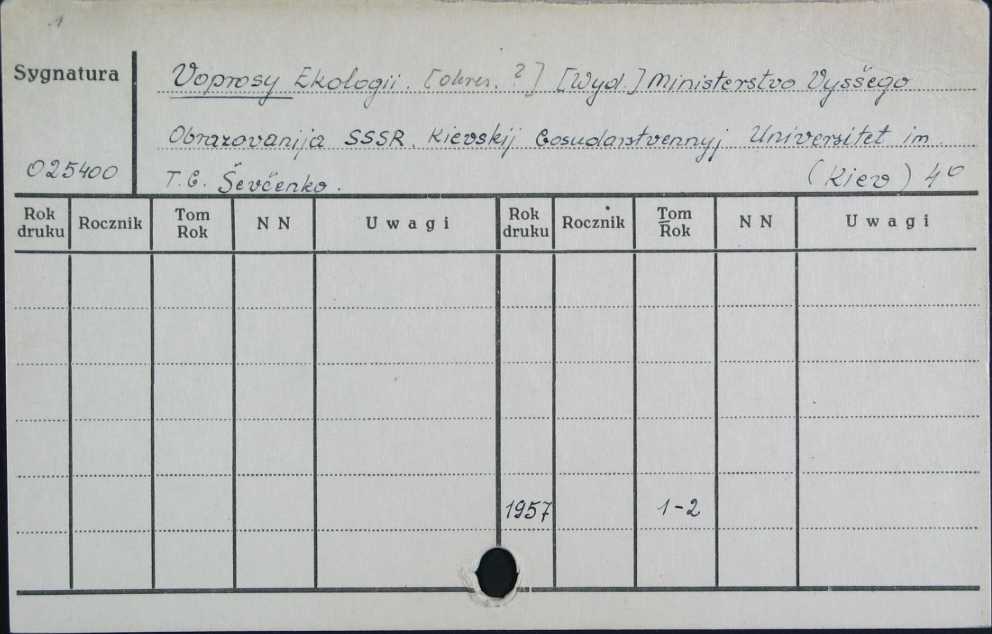 1
Sygnatura
Voprosy Ekologii. [okres. ?] [Wyd.] Ministerstvo Vysšego
Obrazovanija SSSR. Kievskij Gosudarstvennyj Universitet im.
025400
T. G. Ševčenko. (Kiev) 4°
Rok druku Rocznik Tom Rok N N Uwagi Rok druku Rocznik Tom Rok N N Uwagi
1957 1-2